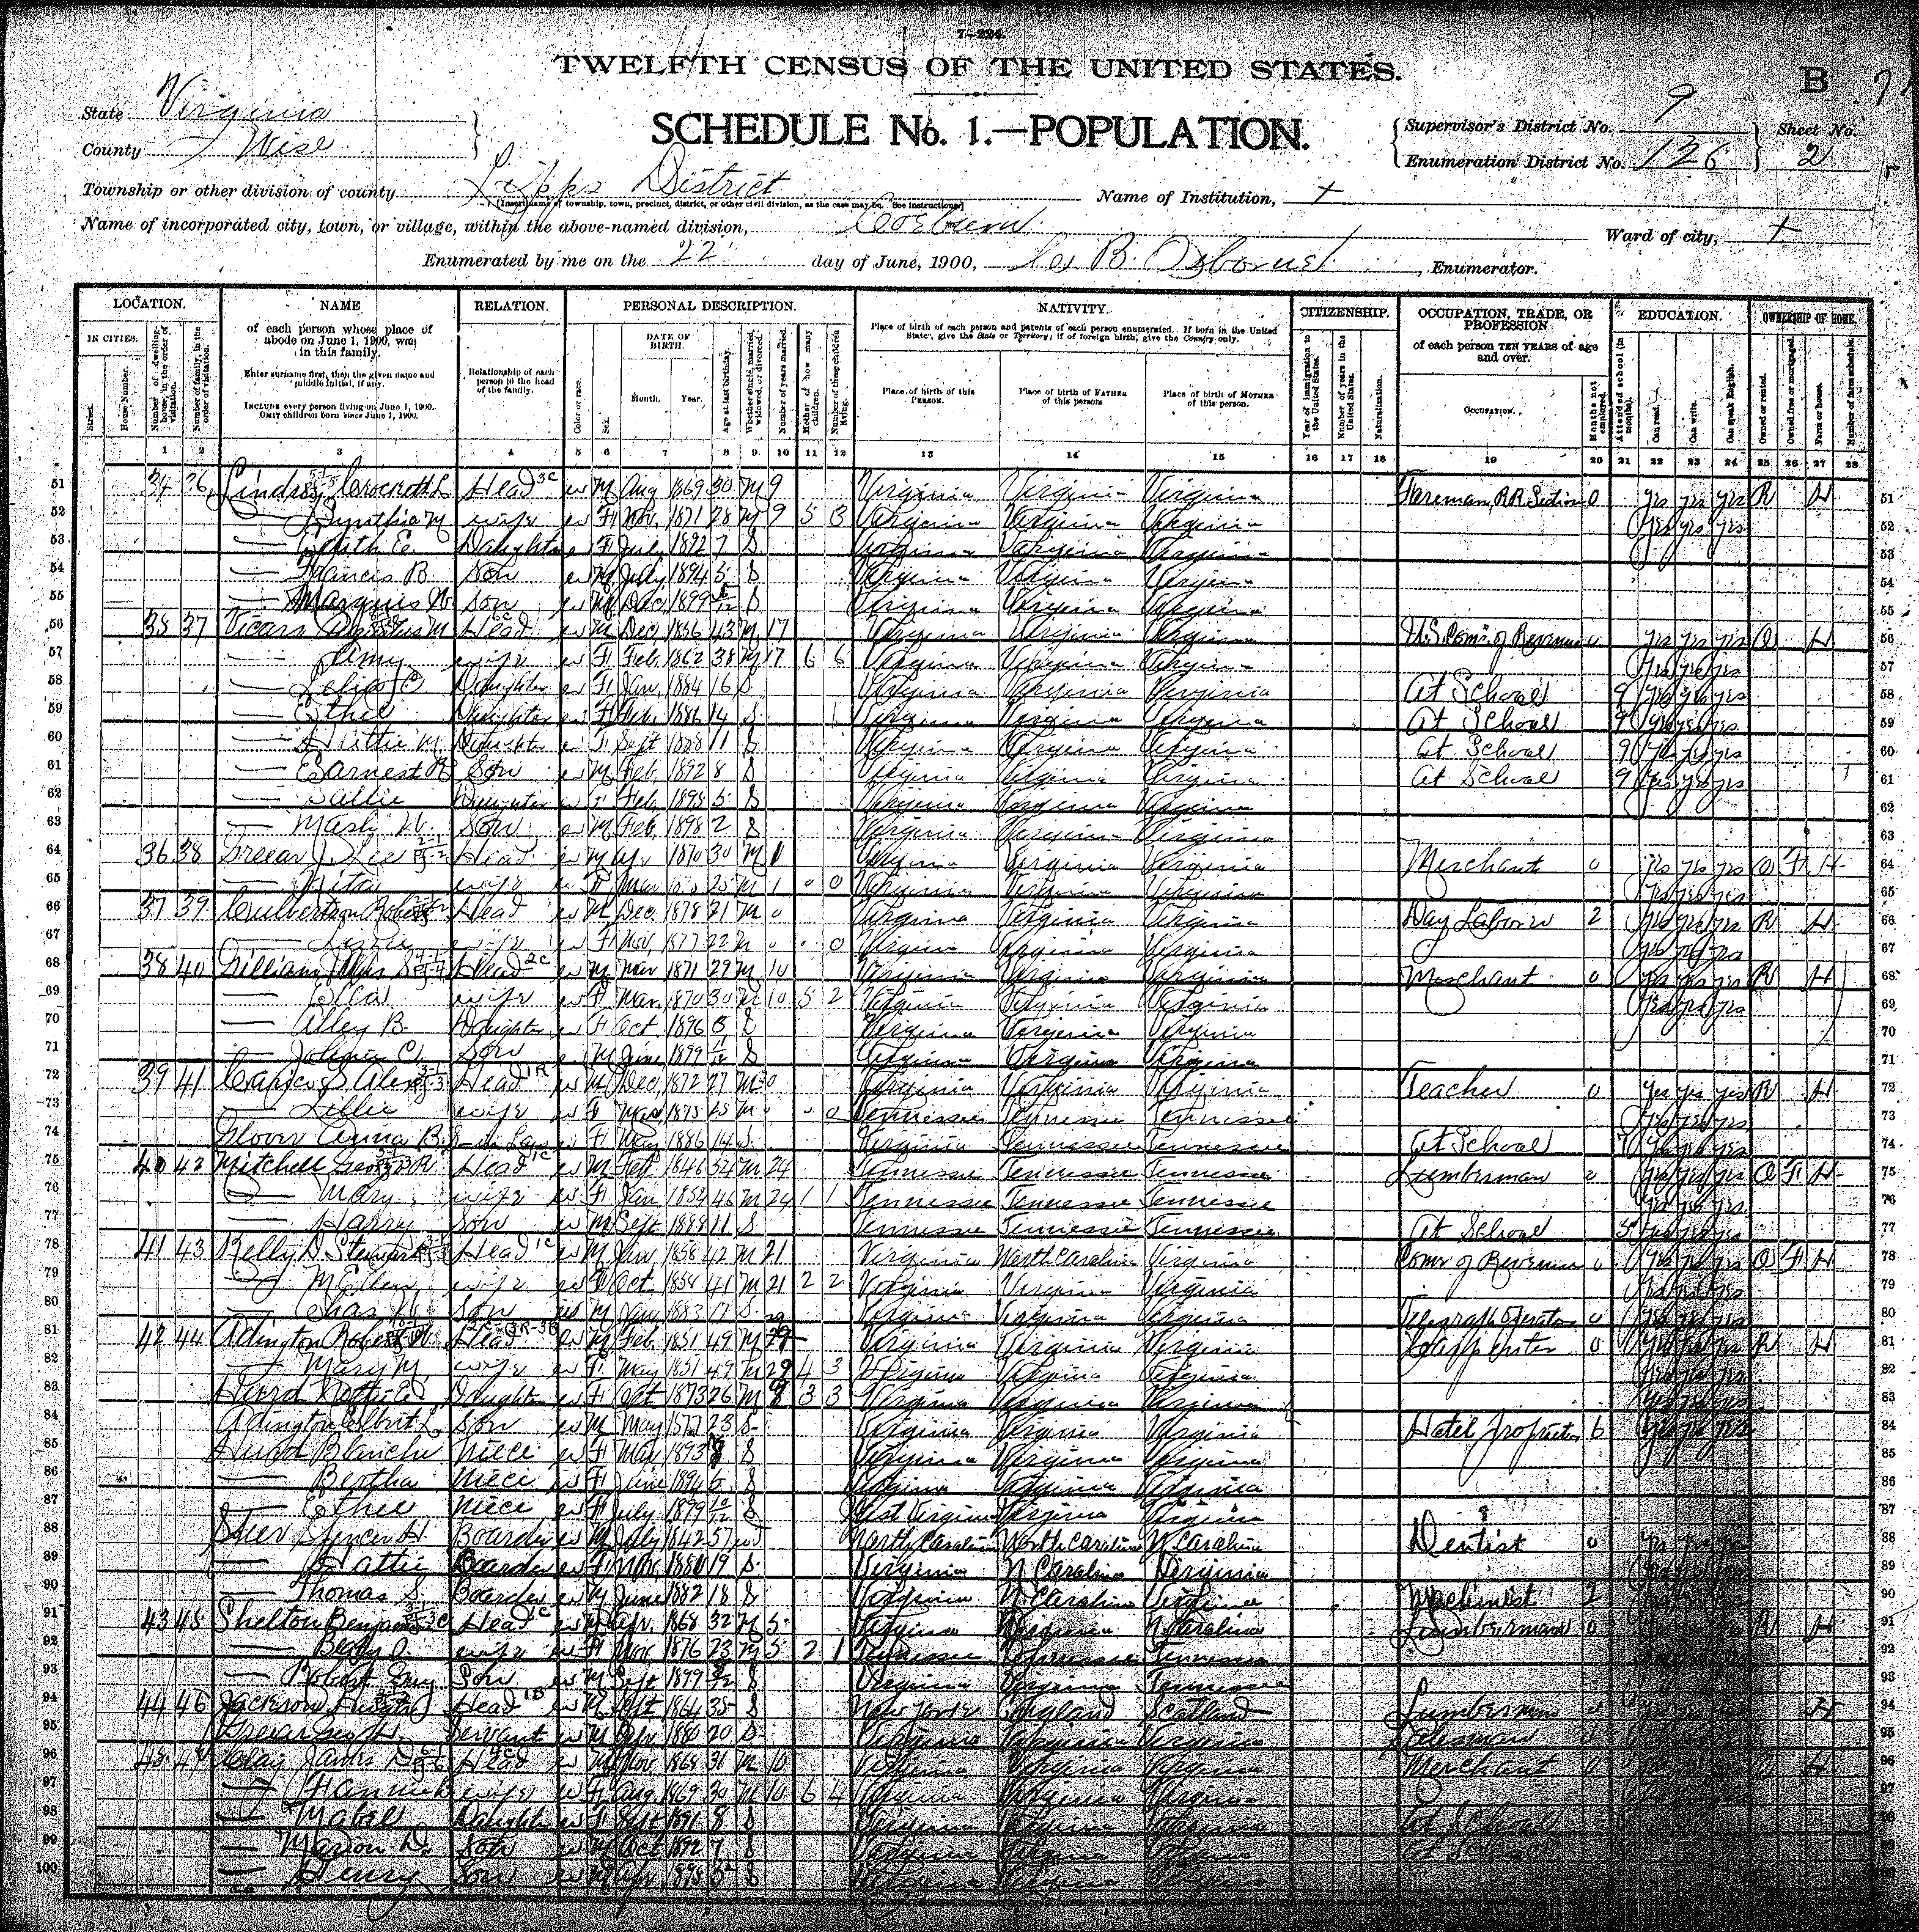 7-224.
TWELFTH CENSUS OF THE UNITED STATES.
B
State Virginia
County Wise
SCHEDULE No. 1.—POPULATION.
Supervisor's District No. 9
Enumeration District No. 126
Sheet No. 2
Township or other division of county Lipps District
[Insert name of township, town, precinct, district, or other civil division, as the case may be. See instructions.]
Name of Institution, +
Name of incorporated city, town, or village, within the above-named division, Coeburn
Ward of city, +
Enumerated by me on the 22 day of June, 1900, B. Osborne, Enumerator.
LOCATION. NAME RELATION. PERSONAL DESCRIPTION. NATIVITY. CITIZENSHIP. OCCUPATION, TRADE, OR PROFESSION EDUCATION. OWNERSHIP OF HOME.
IN CITIES. Street. House Number. Number of dwelling-house, in the order of visitation. Number of family, in the order of visitation.
of each person whose place of abode on June 1, 1900, was in this family.
Enter surname first, then the given name and middle initial, if any.
INCLUDE every person living on June 1, 1900. OMIT children born since June 1, 1900.
Relationship of each person to the head of the family.
Color or race. Sex. DATE OF BIRTH. Month. Year. Age at last birthday. Whether single, married, widowed, or divorced. Number of years married. Mother of how many children. Number of these children living.
Place of birth of each person and parents of each person enumerated. If born in the United States, give the State or Territory; if of foreign birth, give the Country only.
Place of birth of this PERSON. Place of birth of FATHER of this person. Place of birth of MOTHER of this person.
Year of immigration to the United States. Number of years in the United States. Naturalization.
of each person TEN YEARS of age and over.
OCCUPATION. Months not employed.
Attended school (in months). Can read. Can write. Can speak English.
Owned or rented. Owned free or mortgaged. Farm or house. Number of farm schedule.
1 2 3 4 5 6 7 8 9 10 11 12 13 14 15 16 17 18 19 20 21 22 23 24 25 26 27 28
51 34 36 Lindsey Crockett L Head w M Aug 1869 30 M 9 Virginia Virginia Virginia Foreman, RR Section 0 yes yes yes R H 51
52 — Cynthia M wife w F Nov 1871 28 M 9 5 3 Virginia Virginia Virginia yes yes yes 52
53 — Edith E Daughter w F July 1892 7 S Virginia Virginia Virginia 53
54 — Francis B Son w M July 1894 5 S Virginia Virginia Virginia 54
55 — Marquis Son w M Dec 1899 S Virginia Virginia Virginia 55
56 35 37 Vicars M Head w M Dec 1856 43 M 17 Virginia Virginia Virginia yes yes yes O H 56
57 — Amy wife w F Feb 1862 38 M 17 6 6 Virginia Virginia Virginia yes yes yes 57
58 — Daughter w F Jan 1884 16 S Virginia Virginia Virginia At School 9 yes yes yes 58
59 — Ethel Daughter w F Feb 1886 14 S Virginia Virginia Virginia At School 9 yes yes yes 59
60 — Hattie M Daughter w F Sept 1888 11 S Virginia Virginia Virginia At School 9 yes yes yes 60
61 — Earnest R Son w M Feb 1892 8 S Virginia Virginia Virginia At School 9 yes yes yes 61
62 — Sallie Daughter w F Feb 1895 5 S Virginia Virginia Virginia 62
63 — Son w M Feb 1898 2 S Virginia Virginia Virginia 63
64 36 38 Greear J. Lee Head w M Apr 1870 30 M 1 Virginia Virginia Virginia Merchant 0 yes yes yes O F H 64
65 — Nita wife w F Mar 25 M 1 0 0 Virginia Virginia Virginia yes yes yes 65
66 37 39 Culbertson Robert Head w M Dec 1878 21 M 0 Virginia Virginia Virginia Day Laborer 2 yes yes yes R H 66
67 — Lizzie wife w F Nov 1877 22 M 0 0 Virginia Virginia Virginia yes yes yes 67
68 38 40 Gilliam Head w M Mar 1871 29 M 10 Virginia Virginia Virginia Merchant 0 yes yes yes R H 68
69 — Ella wife w F Mar 1870 30 M 10 5 2 Virginia Virginia Virginia yes yes yes 69
70 — Alley B. Daughter w F Oct 1896 3 S Virginia Virginia Virginia 70
71 — Johnie C. Son w M June 1899 11/12 S Virginia Virginia Virginia 71
72 39 41 Head w M Dec 1872 27 M 0 Virginia Virginia Virginia Teacher 0 yes yes yes R H 72
73 — Lillie wife w F Mar 1875 25 M 0 Tennessee Tennessee Tennessee yes yes yes 73
74 Glover Anna B. w F May 1886 14 S Virginia Tennessee Tennessee At School 7 yes yes yes 74
75 40 42 Mitchell George R. Head w M Feb 1846 54 M 24 Tennessee Tennessee Tennessee Lumberman 0 yes yes yes O F H 75
76 — Mary wife w F Jan 1854 46 M 24 1 1 Tennessee Tennessee Tennessee yes yes yes 76
77 — Harry Son w M Sept 1888 11 S Tennessee Tennessee Tennessee At School 5 yes yes yes 77
78 41 43 Kelly D. Stewart Head w M Jan 1858 42 M 21 Virginia North Carolina Virginia Comr of Revenue 0 yes yes yes O F H 78
79 — M Ellen wife w F Oct 1858 41 M 21 2 2 Virginia Virginia Virginia yes yes yes 79
80 — Chas W. Son w M Jan 1883 17 S Virginia Virginia Virginia Telegraph Operator 0 yes yes yes 80
81 42 44 Adington Robert Head w M Feb 1851 49 M 29 Virginia Virginia Virginia Carpenter 0 yes yes yes R H 81
82 — Mary M wife w F May 1851 49 M 29 4 3 Virginia Virginia Virginia yes yes yes 82
83 Daughter w F Oct 1873 26 M 3 3 Virginia Virginia Virginia 83
84 Adington Elbert L Son w M May 1877 23 S Virginia Virginia Virginia Hotel Proprietor 6 yes yes yes 84
85 Blanche Niece w F May 1893 S Virginia Virginia Virginia 85
86 — Bertha Niece w F June 1894 S Virginia Virginia Virginia 86
87 — Ethel Niece w F July 1899 10/12 S West Virginia Virginia Virginia 87
88 Spencer H. Boarder w M July 1842 57 North Carolina North Carolina N Carolina Dentist 0 yes 88
89 — Hattie Boarder w F Nov 1880 19 S Virginia N Carolina Virginia 89
90 — Thomas S. Boarder w M June 1882 18 S Virginia N Carolina Virginia Machinist 2 90
91 43 45 Shelton Benjamin C Head w M Apr 1868 32 M 5 Virginia Virginia N Carolina Lumberman 0 R H 91
92 — wife w F Nov 1876 23 M 5 2 1 Tennessee Tennessee Tennessee 92
93 — Robert Son w M Sept 1899 S Virginia Virginia Tennessee 93
94 44 46 Jackson Head w M Sept 1864 35 S New York England Scotland Lumberman H 94
95 Greear Geo H. Servant w M Apr 1880 20 S Virginia Virginia Virginia Salesman 95
96 45 47 Clay James D Head w M Nov 1868 31 M 10 Virginia Virginia Virginia Merchant 0 H 96
97 — Fannie B wife w F Aug 1869 30 M 10 6 4 Virginia Virginia Virginia 97
98 — Mabel Daughter w F Sept 1891 8 S Virginia Virginia Virginia At School 98
99 — Marion D. Son w M Oct 1892 7 S Virginia Virginia Virginia At School 99
100 — Henry Son w M Apr 1895 5 S Virginia Virginia Virginia 100